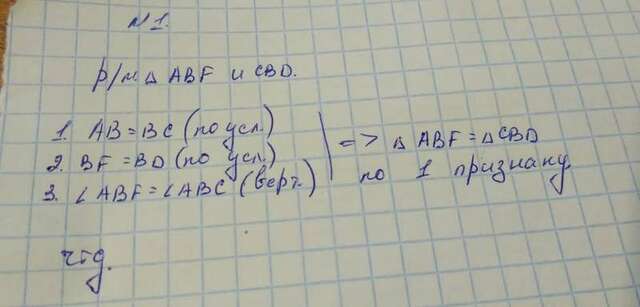 №1.
р/м △ ABF и CBD.
1. AB = BC (по усл.)
2. BF = BD (по усл.)
3. ∠ABF = ∠ABC (верт.)
=> △ ABF = △CBD
по 1 признаку
чтд.